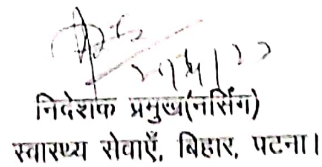 निदेशक प्रमुख(नर्सिंग)
स्वास्थ्य सेवाएँ, बिहार, पटना।